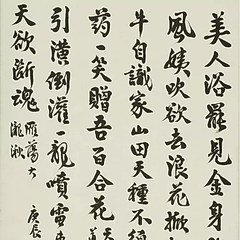 美人浴罷見金身
風姨吹欲去浪花掀
牛自識家山田天種不
药一笑贈吾百合花
引潢倒灌一龍噴雪
天欲断魂 雁蕩大
龍湫 庚辰